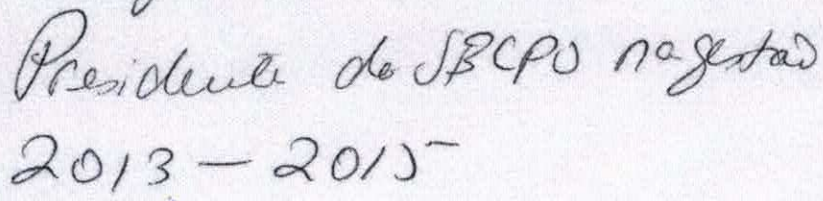 Presidente da SBCPO na gestão
2013 - 2015